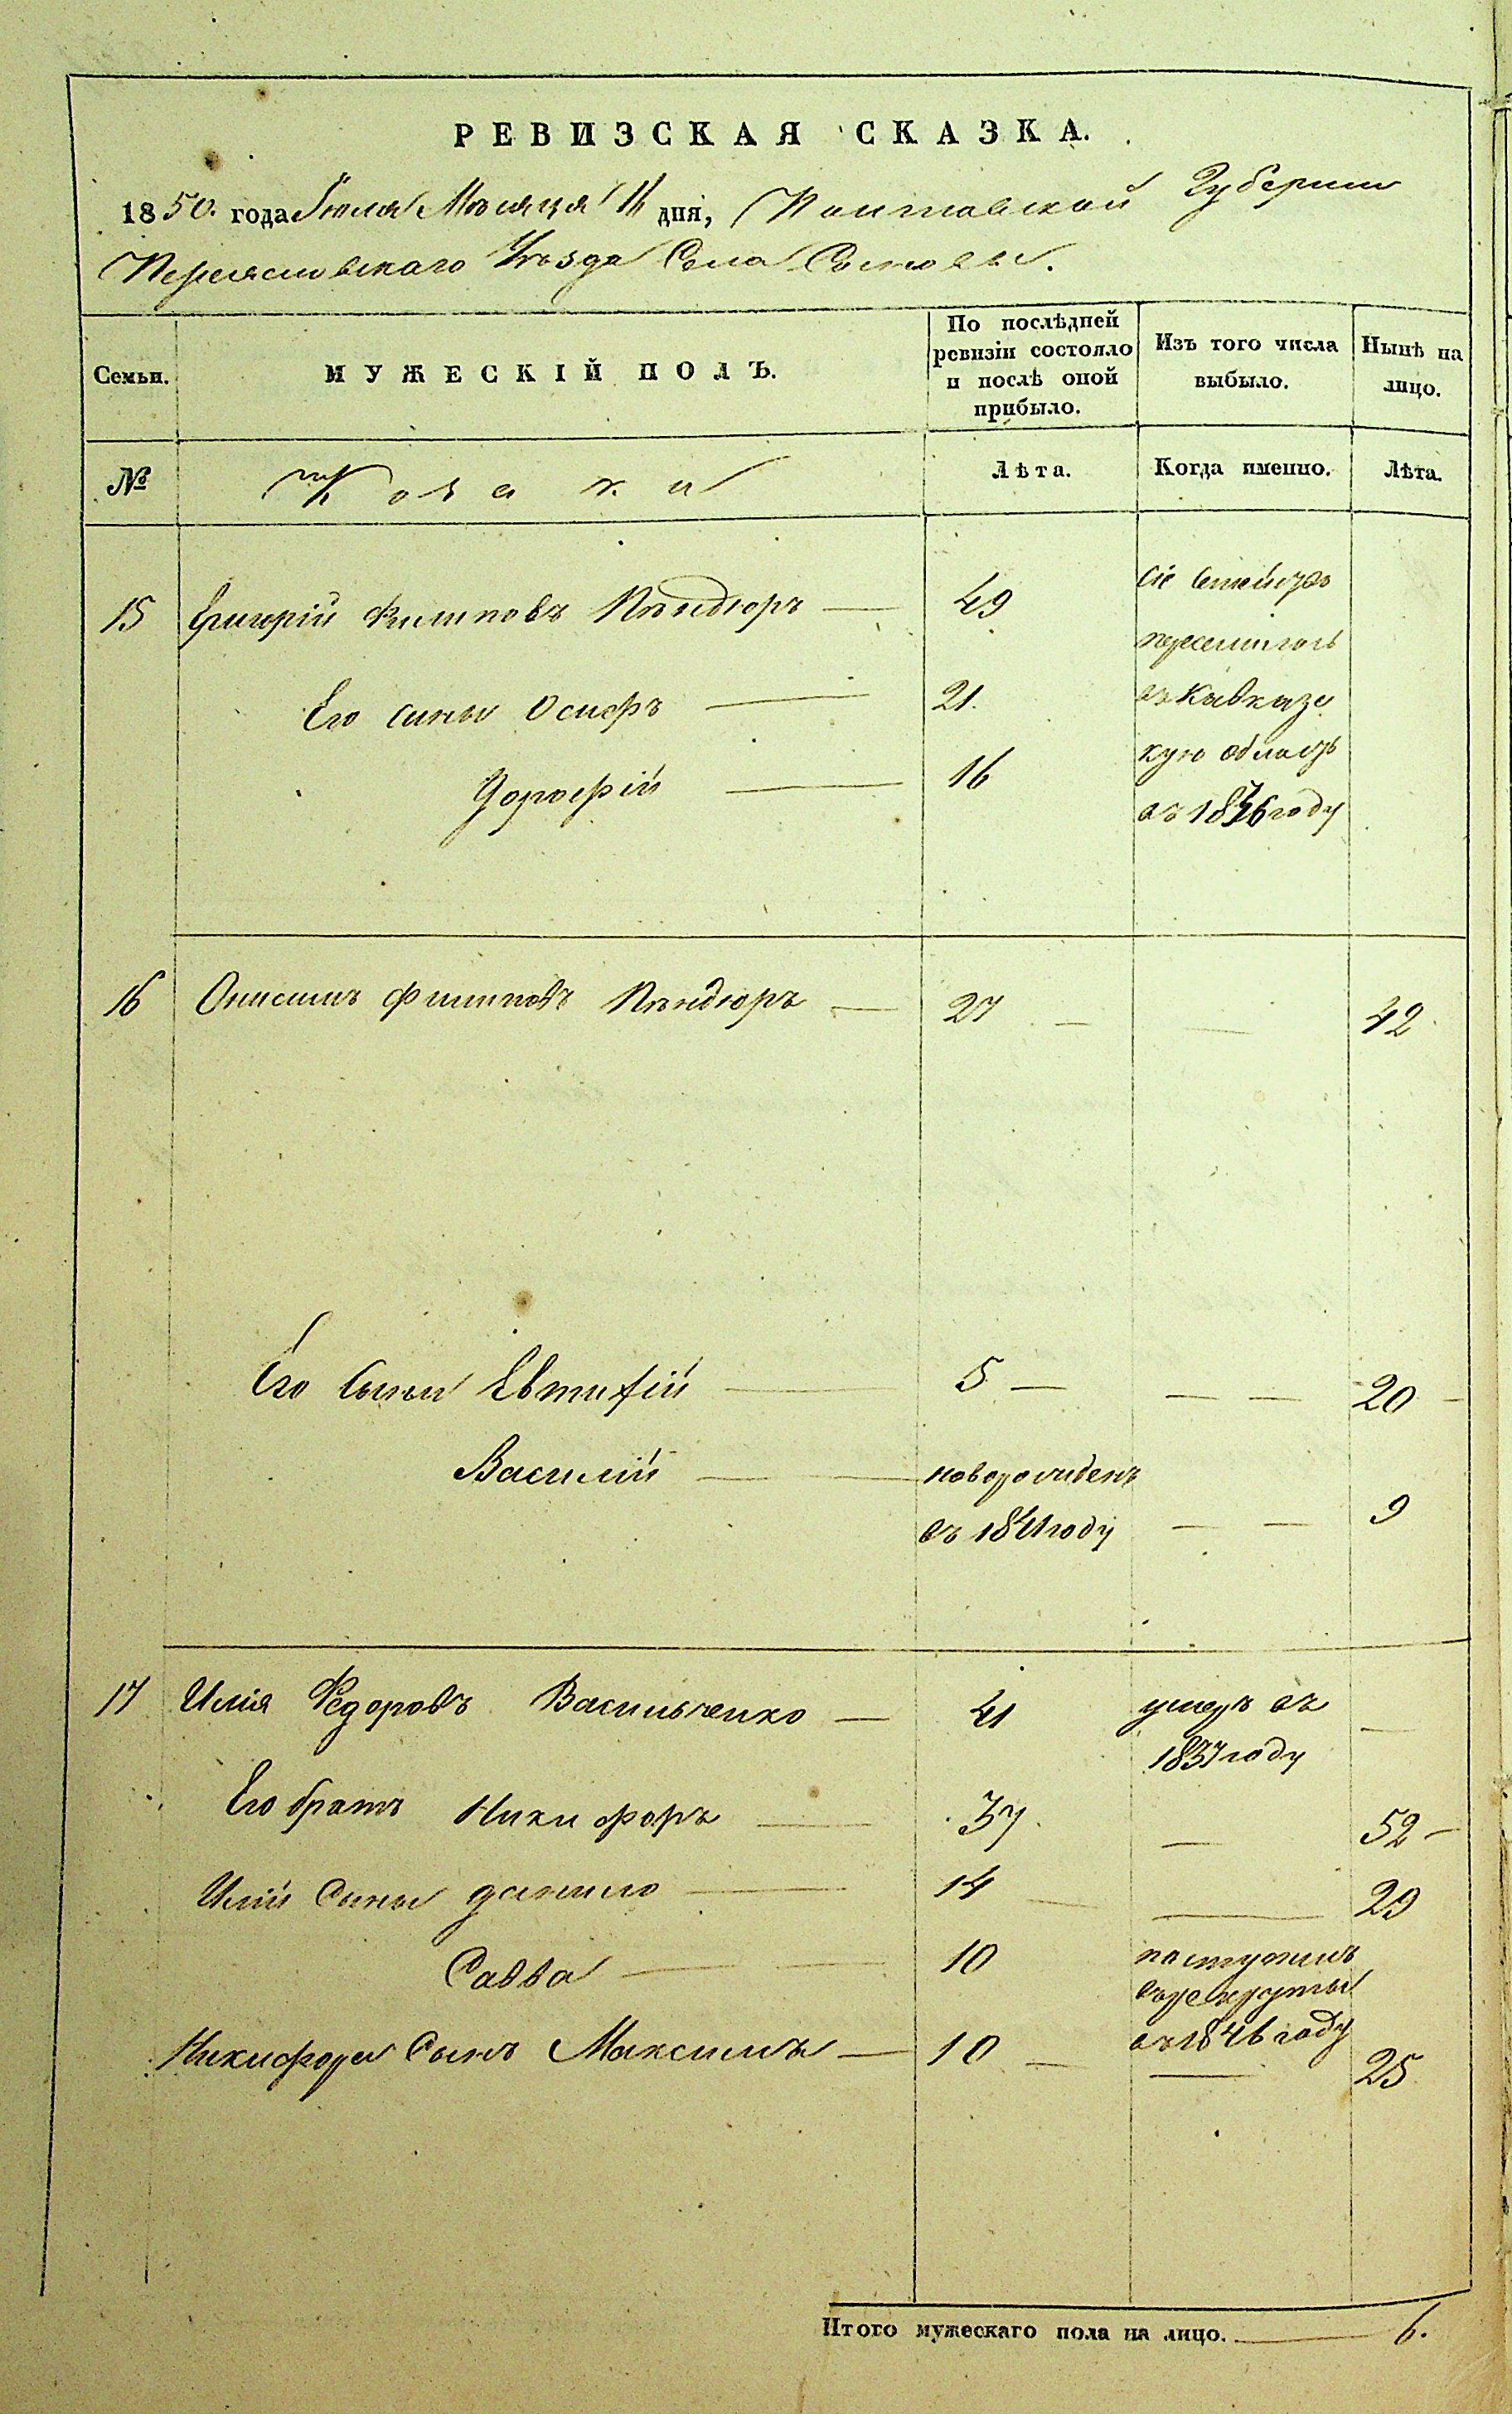 РЕВИЗСКАЯ СКАЗКА.
1850. года Іюля Мѣсяця 11 дня, Полтавской Губерніи
Переясловскаго Уѣзда Села Сосновы.
Семьи.
МУЖЕСКІЙ ПОЛЪ.
По послѣдней
ревизіи состояло
и послѣ оной
прибыло.
Изъ того числа
выбыло.
Нынѣ на
лицо.
№
Козаки
Лѣта.
Когда именно.
Лѣта.
15 Григорій Филиповъ Пѣндюръ — 49 сіе Семейство
переселилось
Его сины Осифъ — 21. въ Кавказс
Дорофій — 16 кую область
въ 1846 году
16 Онисимъ Филиповъ Пѣндюръ — 27 — — 42
Его сыны Евтифій — 5 — — — 20 —
Василій — новорожденъ
въ 1841 году — — 9
17 Илія Федоровъ Васильченко — 41 умеръ въ —
1837 году
Его братъ Никифоръ — 37. — 52 —
Иліи Сины Данило — 14 — — 29
Савва — — 10 поступилъ
въ рекруты
въ 1846 году
Никифора Сынъ Максимъ — 10 — — 25
Итого мужескаго пола на лицо. — 6.